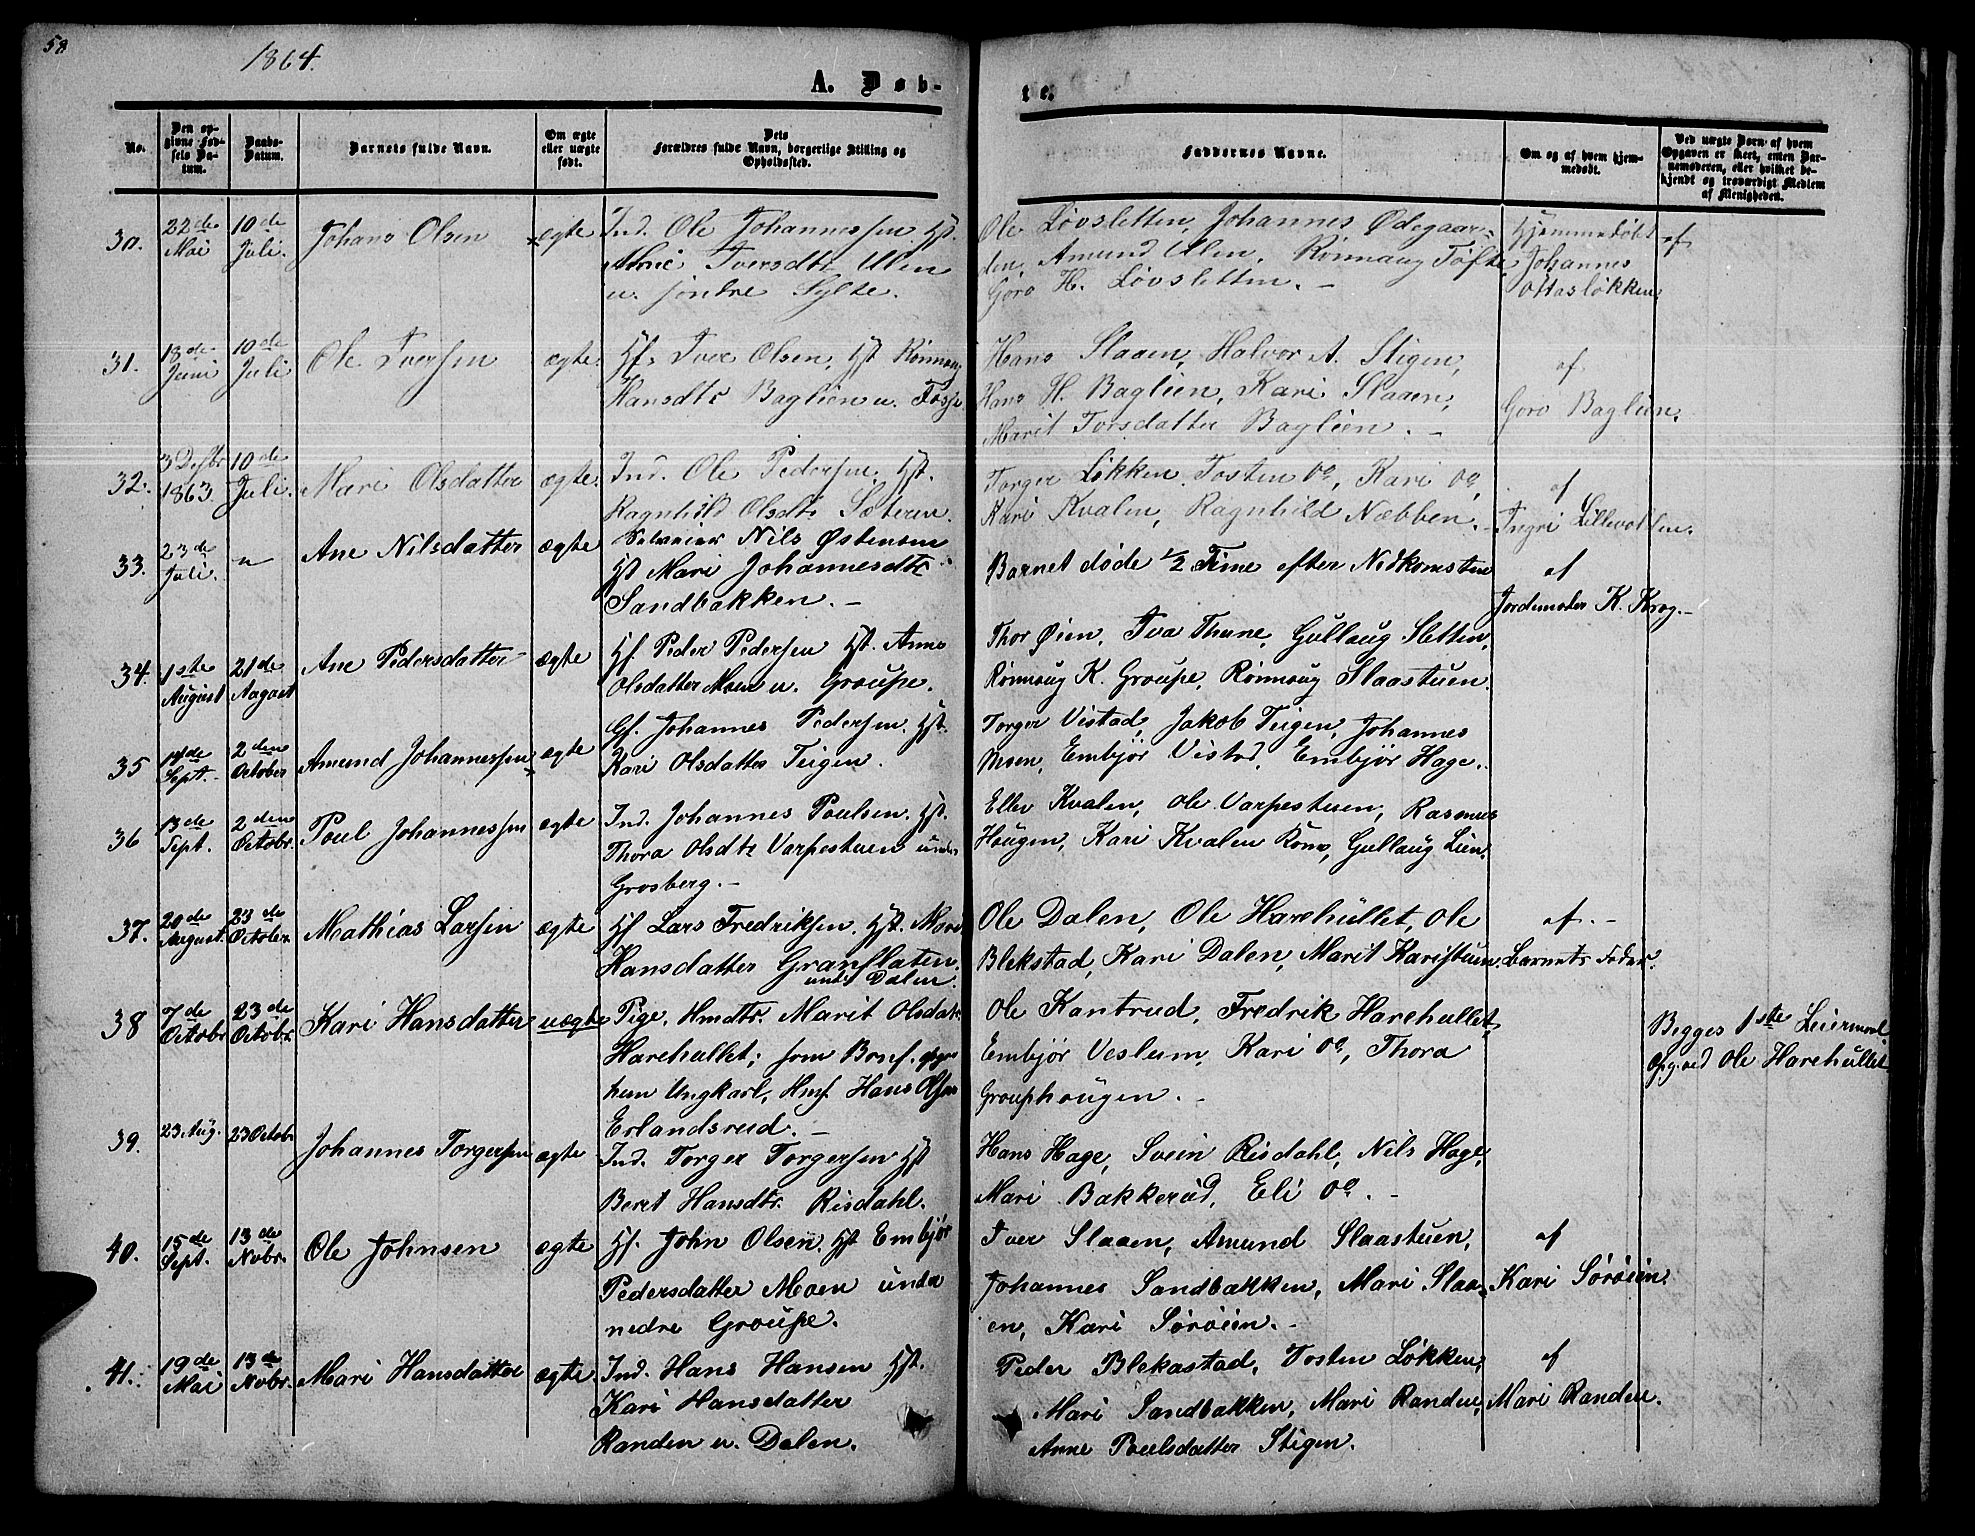 58
1864.
A. Døb-
te.
No.
Den op-
givne Fød-
sels Da-
tum.
Daabs-
Datum.
Barnets fulde Navn.
Om ægte
eller uægte
født.
Dets
Forældres fulde Navn, borgerlige Stilling og
Opholdssted.
Faddernes Navne.
Om og af hvem hjem-
medøbt.
Ved uægte Børn af hvem
Opgaven er skeet, enten Bar-
nemoderen, eller hvilket be-
kjendt og troværdigt Medlem
af Menigheden.
30. 22de Mai 10de Juli. Johans Olsen ægte Ind. Ole Johannessen Hst.
Iversdtr Ulen
u. søndre Sylte.
Ole Løvsletten, Johannes Ødegaar-
den, Amund Ulen, Rønnaug Tofte,
Goro H. Løvsletten. -
Hjemmedøbt af
Johannes
Ottasløkken.
31. 18de Juni 10de Juli Ole Iversen ægte. Hf. Iver Olsen, Hst Rønnaug
Hansdtr Baglien u. Fosse
Hans Slaaen, Halvor A. Stigen,
Hans H. Baglien, Kari Slaaen,
Marit Torsdatter Baglien. -
af
Goro Baglien.
32. 3 Desbr 1863. 10de Juli. Mari Olsdatter ægte. Ind. Ole Pedersen. Hst.
Ragnhild Olsdtr Sæteren.
Torger Løkken. Tosten do, Kari do,
Kari Kvalen, Ragnhild Næbben. -
af
Ingri Lillevolden.
33. 23de Juli. " Ane Nilsdatter ægte Nils Østensen
Hst Mari Johannesdtr
Sandbakken. -
Barnet døde 1/2 Time efter Nedkomsten
af
Jordemoder K. Krog. -
34. 1ste August 21de August Ane Pedersdatter ægte Hf. Peder Pedersen Hst. Anne
Olsdatter Moen u. Groupe.
Thor Øien, Iva Thune, Gullaug Sletten,
Rønnaug K. Groupe, Rønnaug Slaastuen.
35 14de Sept. 2den October Amund Johannessen ægte Gf. Johannes Pedersen. Hst.
Kari Olsdatter Teigen.
Torger Vistad, Jakob Teigen, Johannes
Moen, Embjør Vistad, Embjør Hage.
36 13de Sept. 2den Octobr. Poul Johannessen ægte Ind. Johannes Poulsen. Hst.
Thora Olsdtr Varpestuen under
Grosberg. -
Ellev Kvalen, Ole Varpestuen, Rasmus
Hougen, Kari Kvalen Kone, Gullaug Lien.
37. 20de August. 23de October Mathias Larsen ægte Hf Lars Fredriksen. Hst. Mari
Hansdatter Granflaten.
under Dalen.
Ole Dalen, Ole Harehullet, Ole
Blekstad, Kari Dalen, Marit Karistuen.
af. -
Barnets Fader.
38 7de Octobr 23de Octobr. Kari Hansdatter uægte Pige, Hmdtr. Marit Olsdatr
Harehullet; som Bonf. opgives
hun Ungkarl, Hmf Hans Olsen
Erlandsrud. -
Ole Kantrud, Fredrik Harehullet,
Embjør Veslum, Kari do, Thora
Grouphougen. -
Begges 1ste Leiermaal
opg. ved Ole Harehullet
39. 23 Aug. 23 Octobr Johannes Torgersen ægte Ind. Torger Torgersen Hst
Beret Hansdtr. Risdahl.
Hans Hage, Svein Risdahl, Nils Hage,
Mari Bakkerud, Eli do. -
40. 15de Sept. 13de Novbr. Ole Johnsen ægte Hf. John Olsen. Hst Embjør
Pedersdatter Moen under
nedre Groupe.
Iver Slaaen, Amund Slaastuen,
Johannes Sandbakken, Mari Slaa-
en, Kari Sørøien. -
af
Kari Sørøien.
41. 19de Mai 13de Novbr. Mari Hansdatter ægte Ind. Hans Hansen Hst.
Kari Hansdatter
Randen u. Dalen.
Peder Blekastad, Tosten Løkken,
Mari Sandbakken, Mari Randen,
Anne Poulsdatter Stigen.
af
Mari Randen.